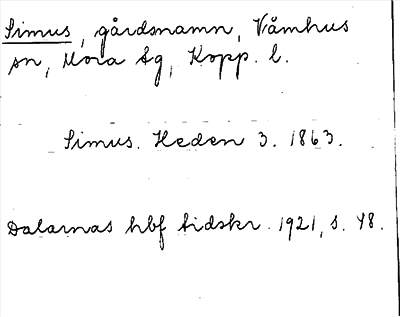 Simus, gårdsnamn, Våmhus
sn, Mora tg, Kopp. l.
Simus. Heden 3. 1863.
Dalarnas hbf tidskr. 1921, s. 48.